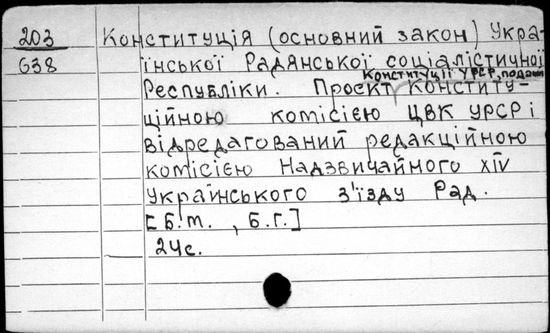 203 Конституція (основний закон) Укра-
638 їнської Радянської соціалістичної
Конституції УРСР, подани
Республіки. Проект конститу-
ційною комісією ЦВК УРСР і
відредагований редакційною
комісією Надзвичайного XIV
Українського з'їзду Рад.
[Б.м., Б.г.]
24с.